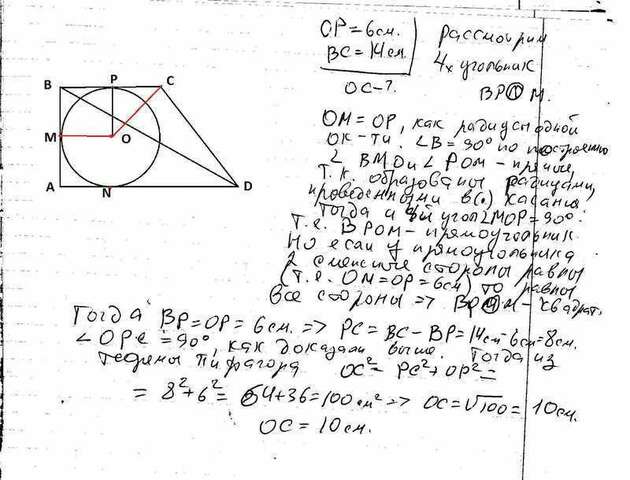 B P C
M O
A N D
OP = 6 см.
BC = 14 см.
OC - ?
рассмотрим
4х угольник
BPOM.
OM = OP, как радиусы одной
ок-ти. ∠B = 90° по построению
∠ BMO и ∠ POM - прямые,
т.к. образованы радиусами,
проведенными в (·) касания
Тогда и 4й угол ∠MOP = 90°.
т.е. BPOM - прямоугольник
Но если у прямоугольника
2 смежные стороны равны
(т.е. OM = OP = 6см) то равны
все стороны => BPOM - квадрат.
Тогда BP = OP = 6 см. => PC = BC - BP = 14 см - 6 см = 8 см.
∠ OPC = 90°, как доказали выше. Тогда из
теоремы Пифагора OC² = PC² + OP² =
= 8² + 6² = 64 + 36 = 100 см² => OC = √100 = 10 см.
OC = 10 см.